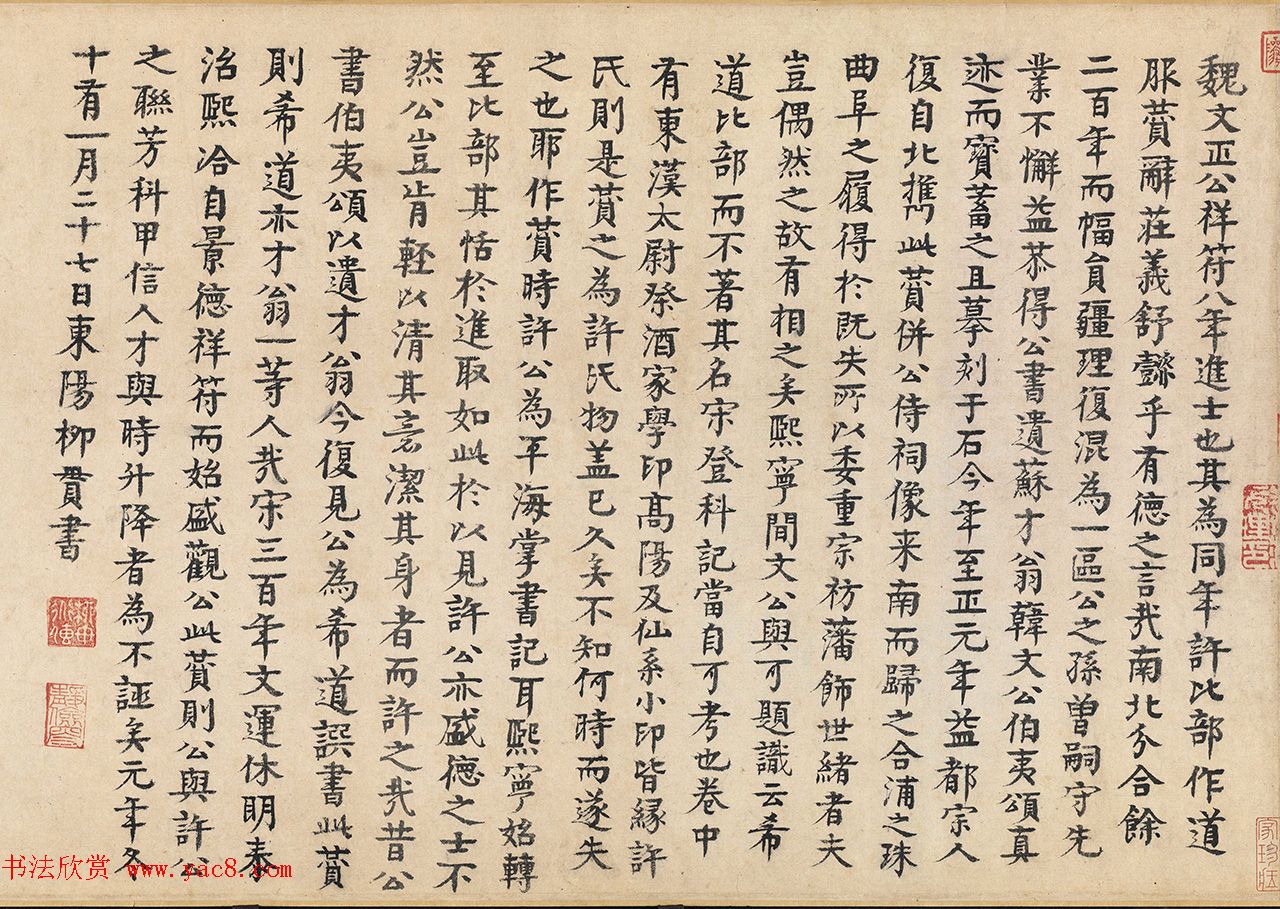 魏文正公祥符八年進士也其為同年許比部作道
服蕡辭荘義舒懿乎有德之言㢤南北分合餘
二百年而幅負疆理復混為一區公之孫曽嗣守先
業不懈益恭得公書遺蘇才翁韓文公伯夷頌真
迹而寶蓄之且摹刻于石今年至正元年益都宗人
復自北携此蕡併公侍祠像来南而歸之合浦之珠
曲阜之履得於既失所以委重宗祊藩飾世緒者夫
豈偶然之故有相之矣熙寧間文公與可題識云希
道比部而不著其名宋登科記當自可考也卷中
有東漢太尉祭酒家學印高陽及仙系小印皆縁許
氏則是蕡之為許氏物盖已久矣不知何時而遂失
之也耶作蕡時許公為平海掌書記耳熙寧始轉
至比部其恬於進取如此於以見許公亦盛德之士不
然公豈肯輕以清其意潔其身者而許之㢤昔公
書伯夷頌以遺才翁今復見公為希道譔書此蕡
則希道亦才翁一等人㢤宋三百年文運休明泰
治熙洽自景德祥符而始盛觀公此蕡則公與許公
之聮芳科甲信人才與時升降者為不誣矣元年冬
十有一月二十七日東陽柳貫書
书法欣赏 www.yac8.com